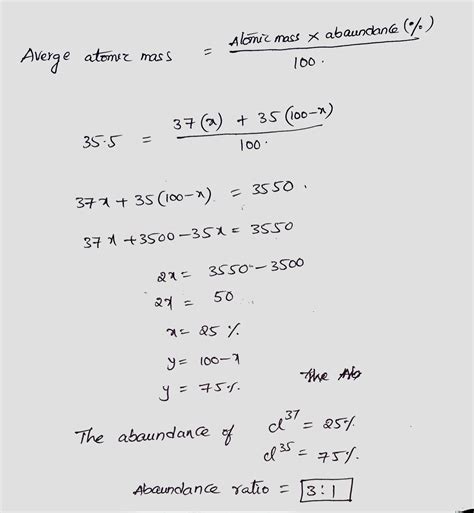 Averge atomic mass = Atomic mass × abaundance (%) / 100.
35.5 = 37(x) + 35(100-x) / 100.
37x + 35(100-x) = 3550.
37x + 3500 - 35x = 3550
2x = 3550 - 3500
2x = 50
x = 25 %
y = 100-x
y = 75%. The Ab
The abaundance of cl³⁷ = 25%
cl³⁵ = 75%.
Abaundance ratio = 3:1